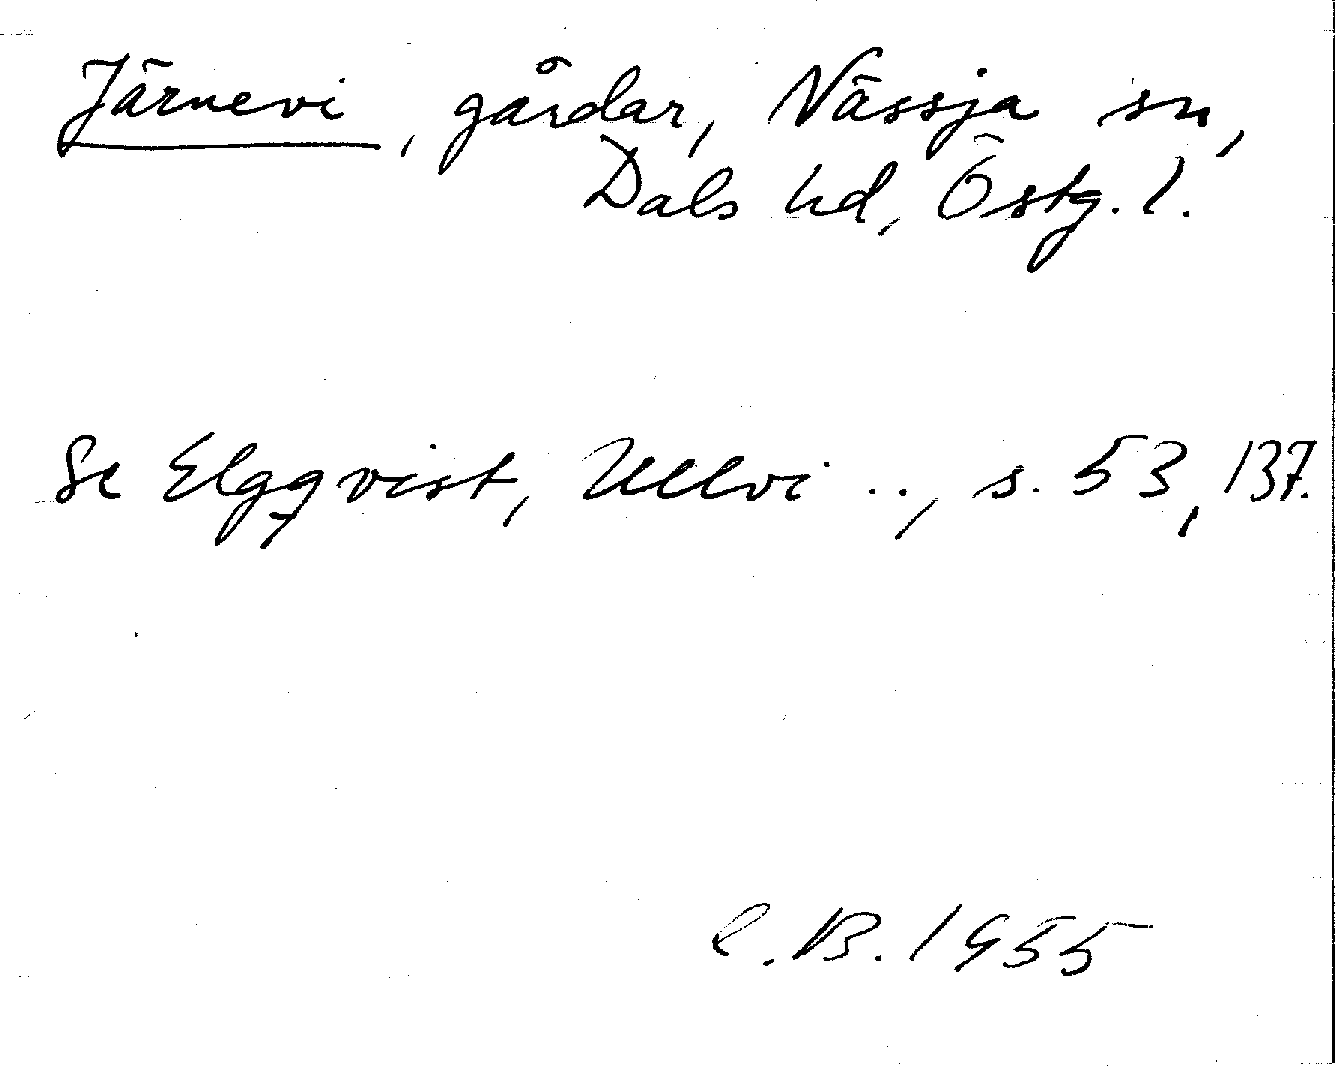 Järnevi, gårdar, Nässja sn,
Dals hd, Östg. l.
Se Elgqvist, Ullvi .., s. 53, 137.
C.B. 1955